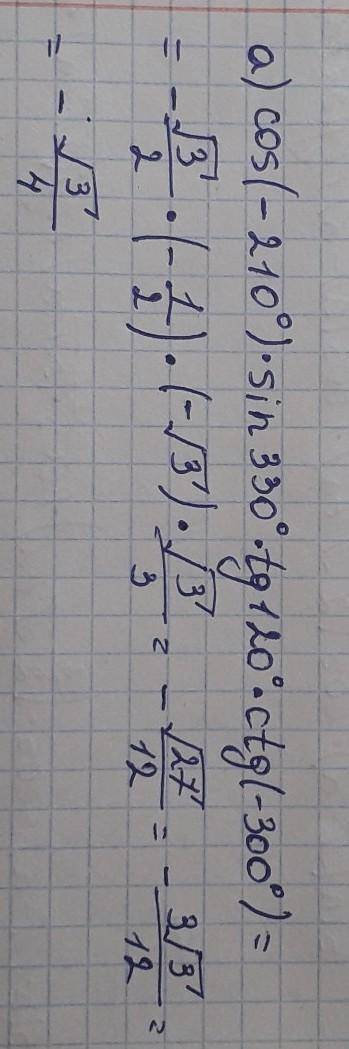 а) cos(-210°)·sin330°·tg120°·ctg(-300°)=
= -√3/2 · (-1/2) · (-√3) · √3/3 = -√27/12 = -3√3/12 =
= -√3/4